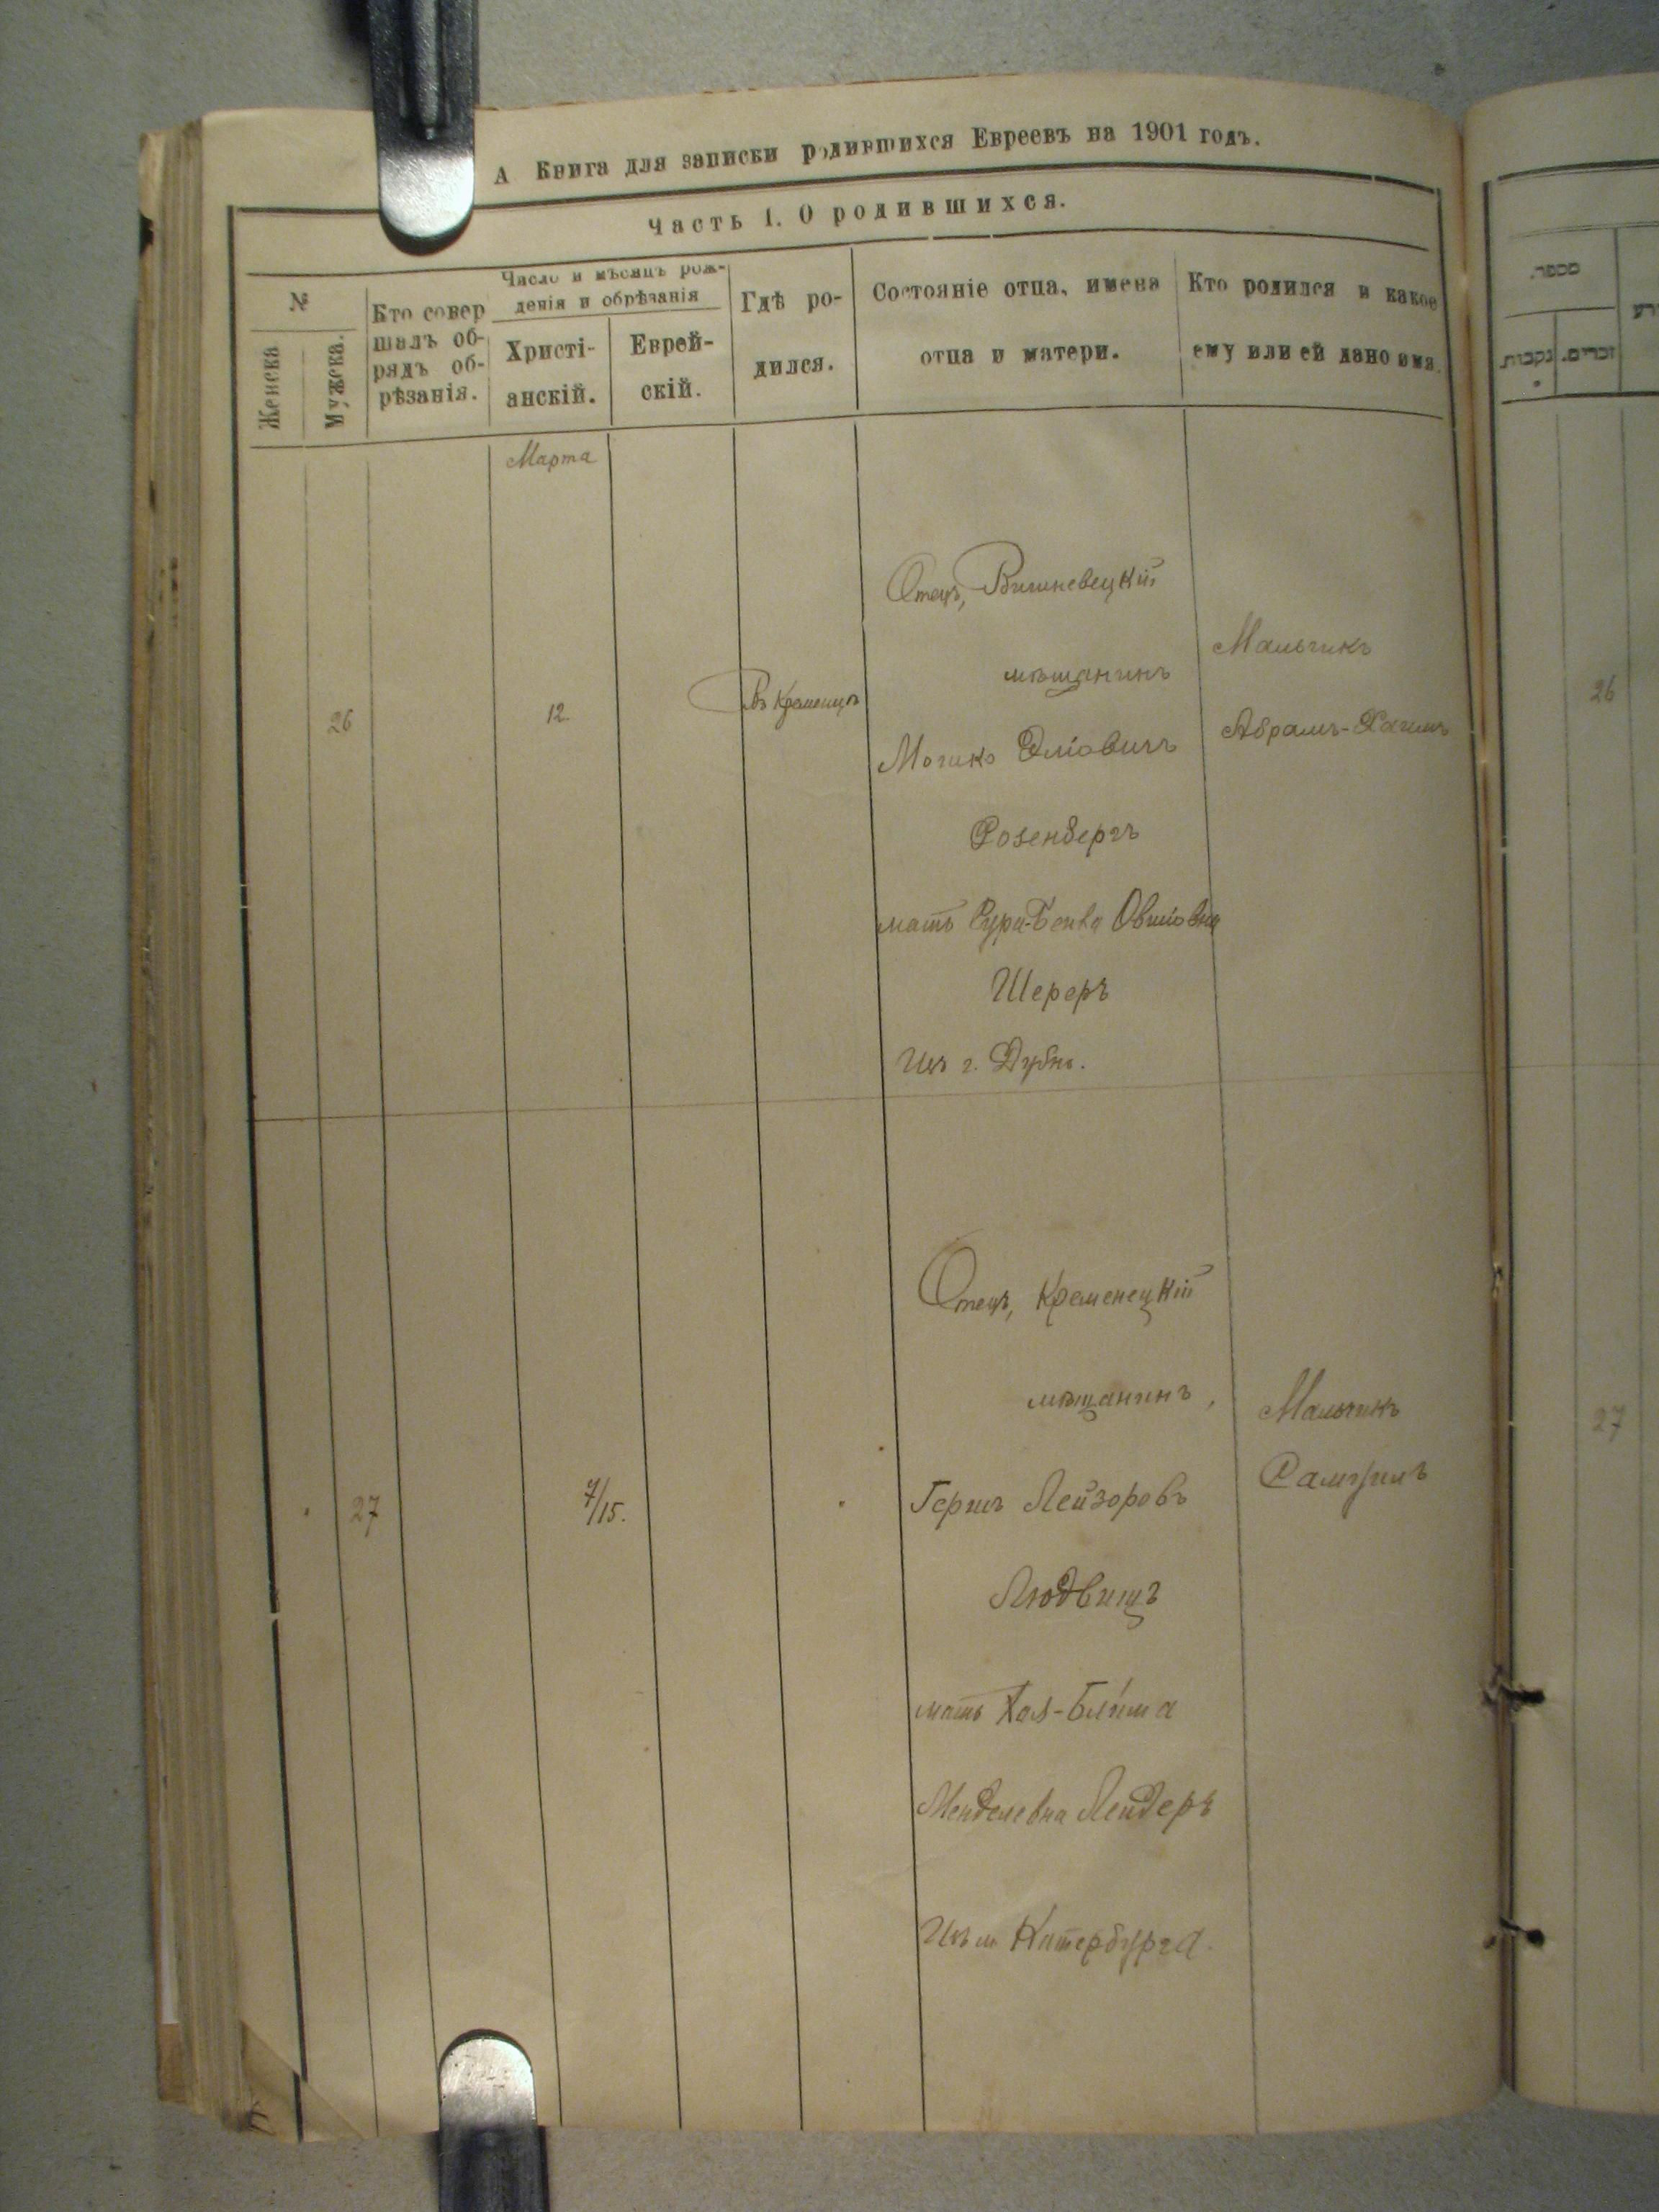 А Книга для записки родившихся Евреевъ на 1901 годъ.
Часть I. О родившихся.
№
Женска
Мужска.
Кто совер
шалъ об-
рядъ об-
рѣзанія.
Число и мѣсяцъ рож-
денія и обрѣзанія
Христі-
анскій.
Еврей-
скій.
Гдѣ ро-
дился.
Состояніе отца, имена
отца и матери.
Кто родился и какое
ему или ей дано имя.
Марта
26
12.
Въ Кременцѣ
Отецъ, Вишневецкій
мѣщанинъ
Мошко Эліовичъ
Розенбергъ
мать Сура-Бейла Овшіовна
Шереръ
Изъ г. Дубно.
Мальчикъ
Абрамъ-Хаимъ
27
7/15.
Отецъ, Кременецкій
мѣщанинъ,
Гершъ Лейзоровъ
Людвищъ
мать Хая-Блима
Менделевна Лендеръ
Изъ м Катербурга.
Мальчикъ
Самуилъ
מספר.
נקבות.
זכרים.
26
27